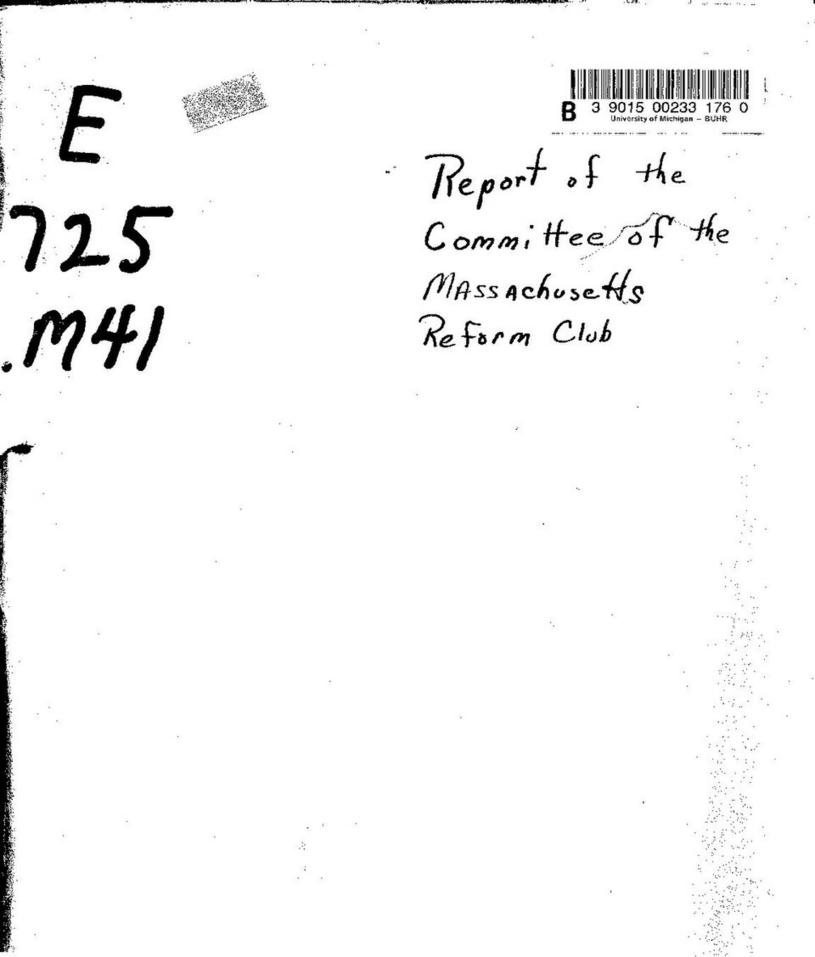 E
725
.M41
B 3 9015 00233 176 0
University of Michigan – BUHR
Report of the
Committee of the
Massachusetts
Reform Club